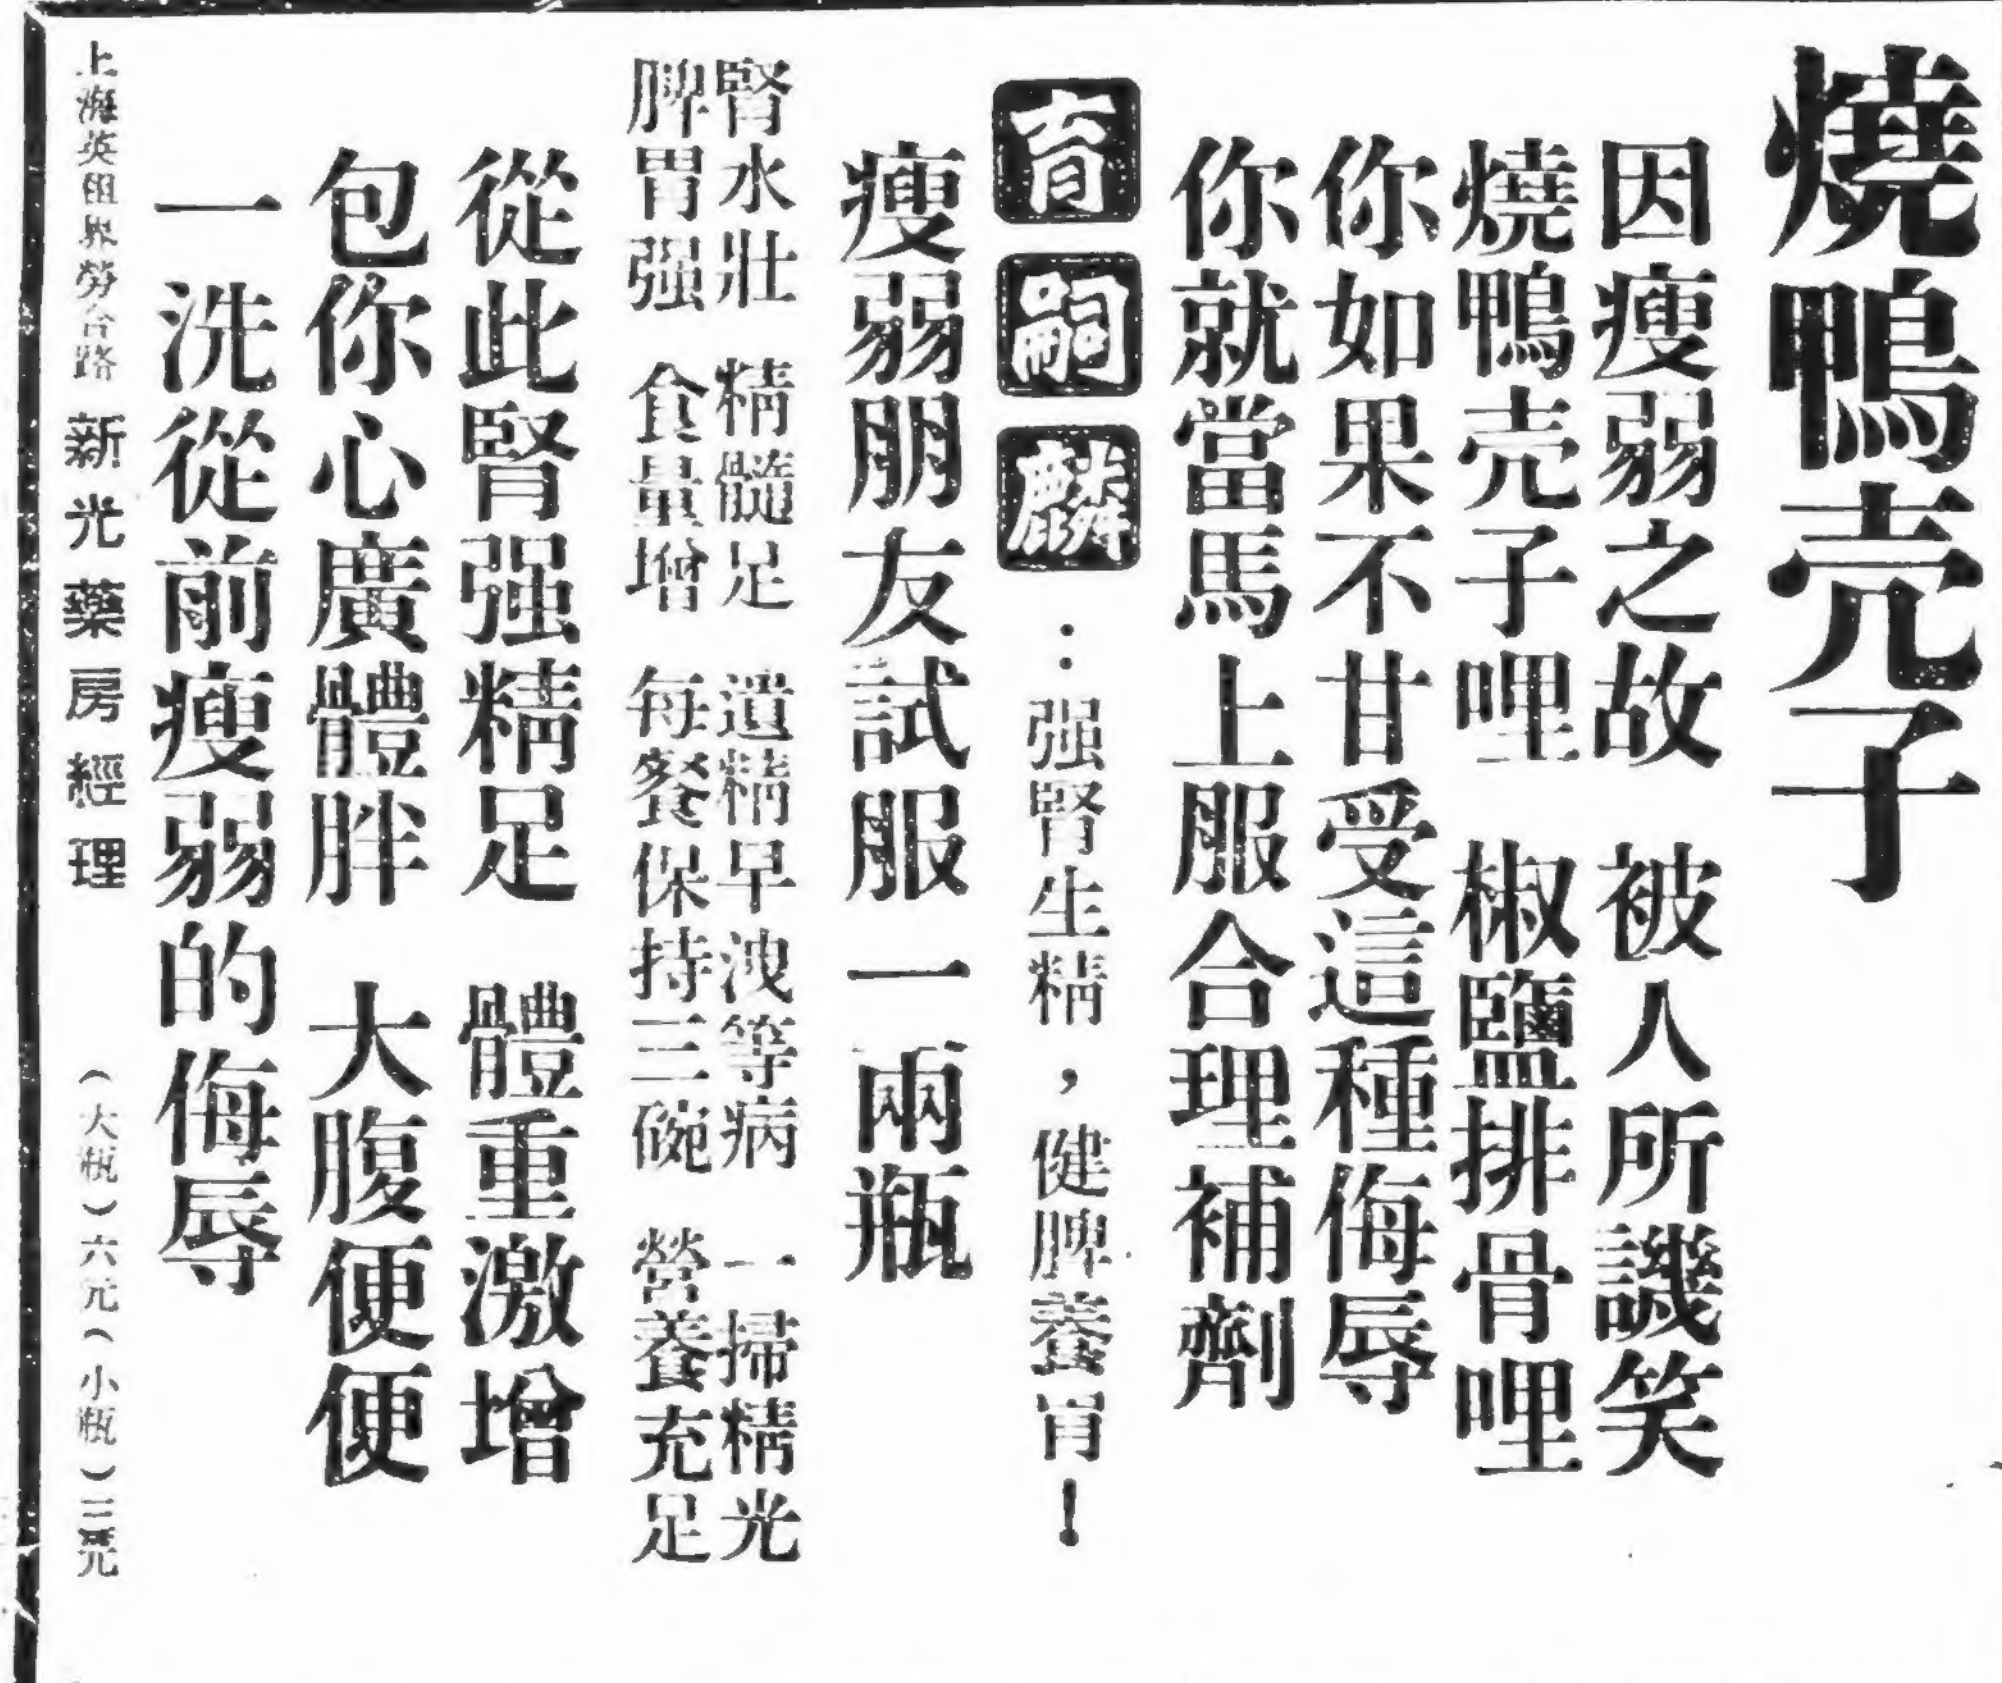 燒鴨壳子
因瘦弱之故　被人所譏笑
燒鴨壳子哩　椒鹽排骨哩
你如果不甘受這種侮辱
你就當馬上服合理補劑
育嗣麟：强腎生精，健脾養胃！
瘦弱朋友試服一兩瓶
腎水壯　精髓足　遺精早洩等病　一掃精光
脾胃强　食量增　每餐保持三碗　營養充足
從此腎强精足　體重激增
包你心廣體胖　大腹便便
一洗從前瘦弱的侮辱
上海英租界勞合路　新光藥房經理　（大瓶）六元（小瓶）三元